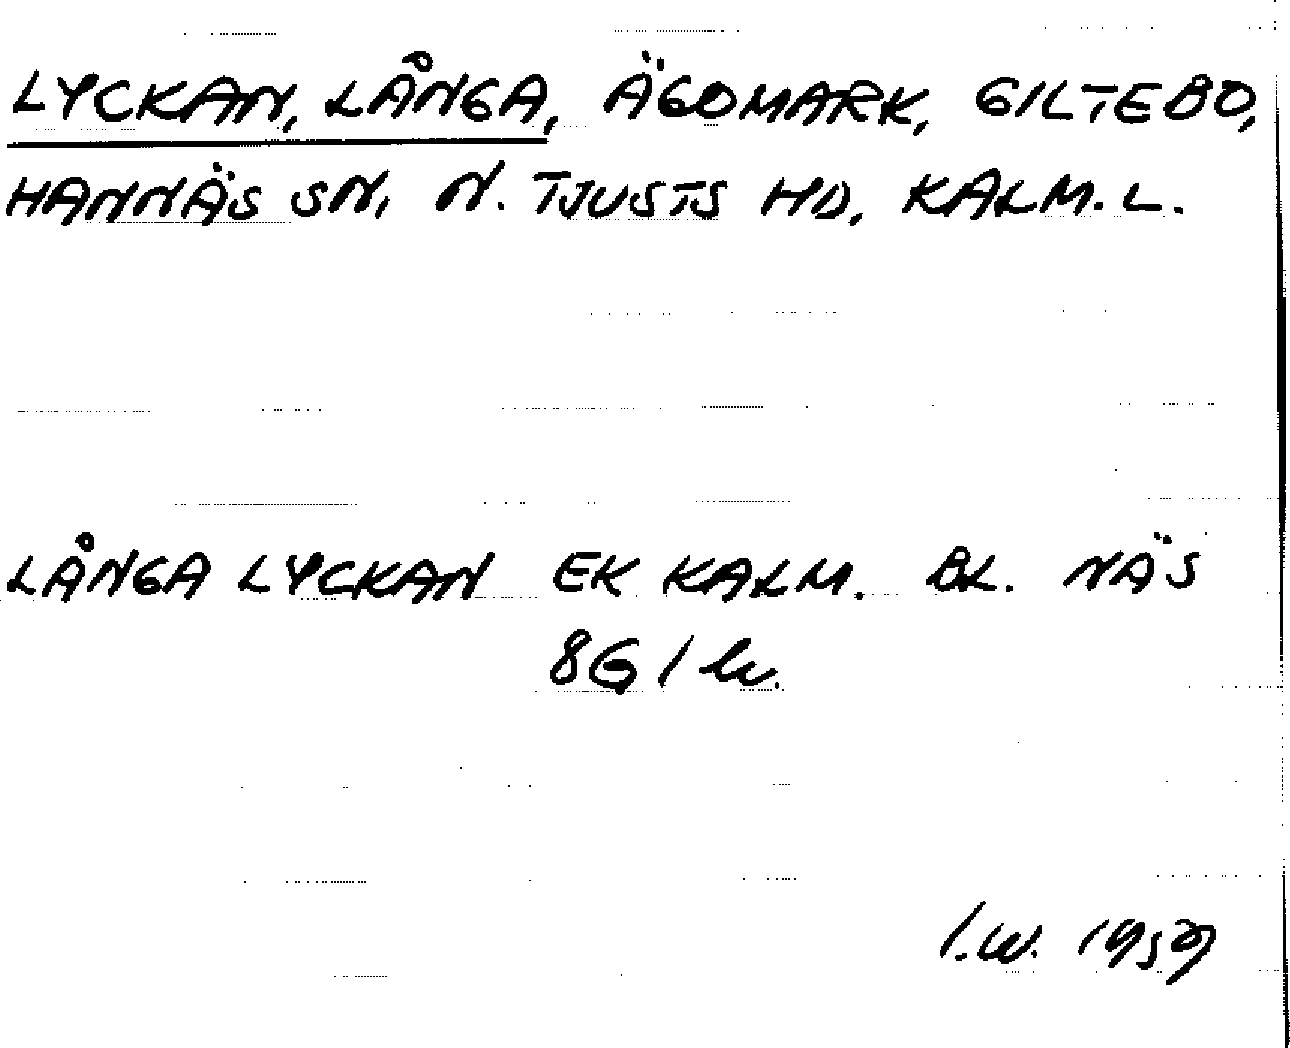 LYCKAN, LÅNGA, ÄGOMARK, GILTEBO,
HANNÄS SN, N. TJUSTS HD, KALM. L.
LÅNGA LYCKAN EK KALM. BL. NÄS
8G 1 k.
I.W. 1959